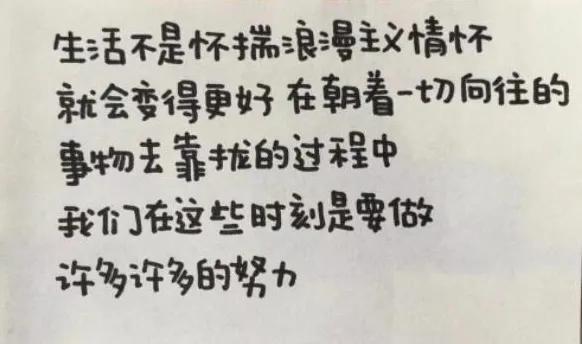 生活不是怀揣浪漫主义情怀
就会变得更好 在朝着一切向往的
事物去靠拢的过程中
我们在这些时刻是要做
许多许多的努力